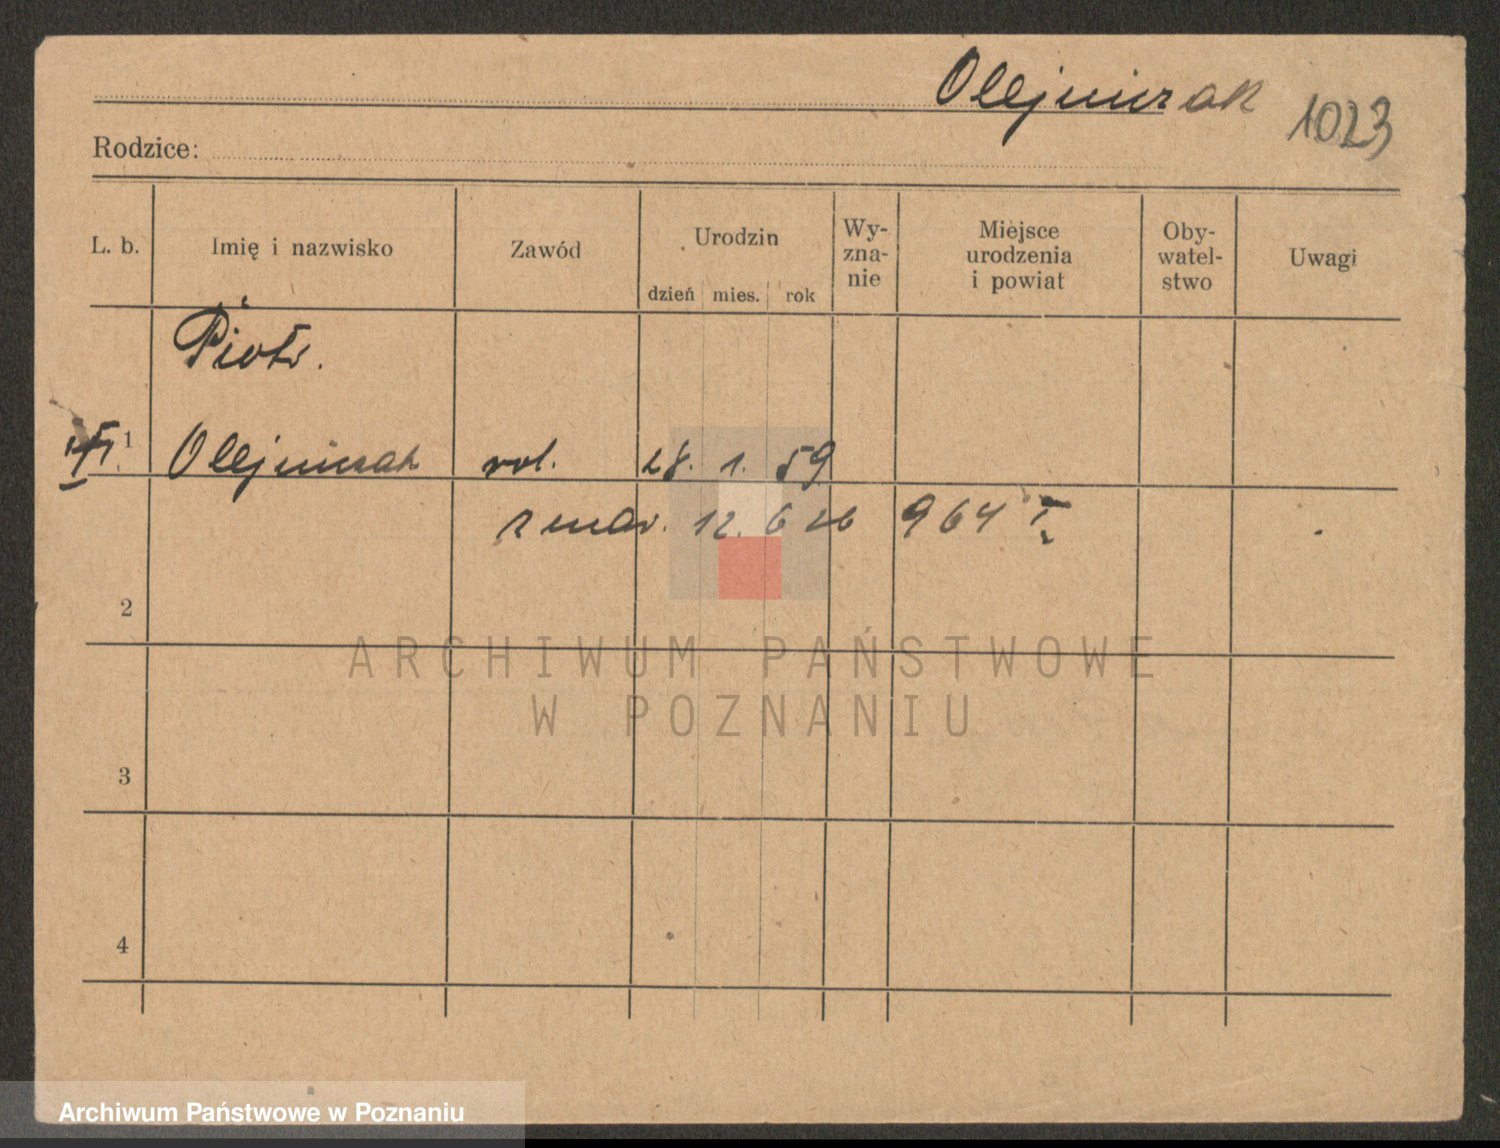 Olejniczak 1023
Rodzice:
L. b. Imię i nazwisko Zawód Urodzin Wy-zna-nie Miejsce urodzenia i powiat Oby-watel-stwo Uwagi
dzień mies. rok
Piotr.
1 Olejniczak rol. 28. 1. 59
zmar. 12. 6 26 964
2
ARCHIWUM PAŃSTWOWE
W POZNANIU
3
4
Archiwum Państwowe w Poznaniu